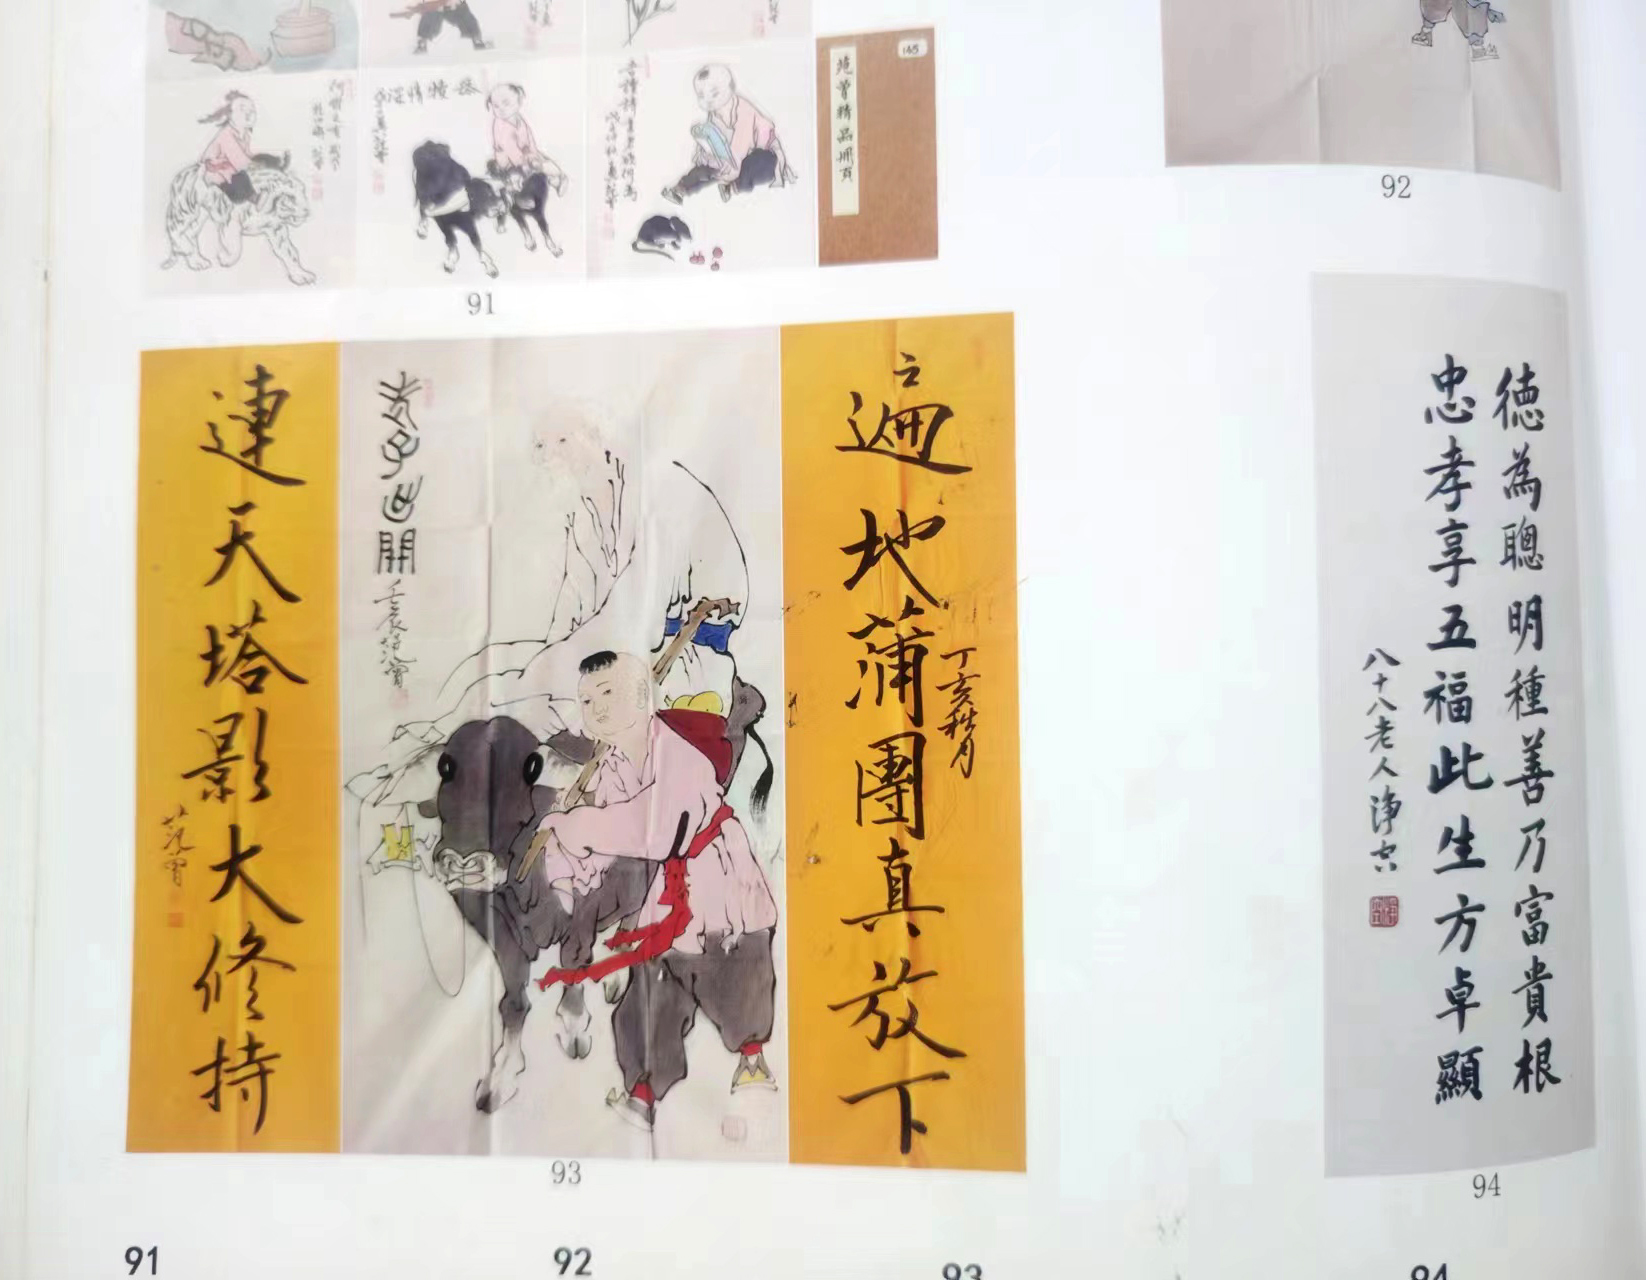 范曾精品冊頁
165
91
92
之
遍地蒲團真放下
丁亥秋月
老子出關
壬辰范曾
連天塔影大修持
范曾
93
德為聰明種善乃富貴根
忠孝享五福此生方卓顯
八十八老人淨空
94
91
92
93
94